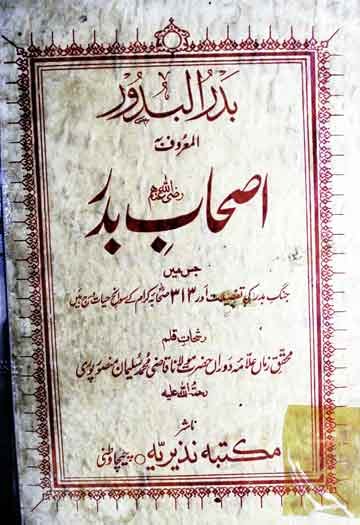 بدرُ البدُور
المعروف بہ
اصحابِ بدر رضی اللہ عنہم
جس میں
جنگِ بدر کی تفصیلات اور ۳۱۳ صحابہ کرام کے سوانح حیات درج ہیں
رشحاتِ قلم
محقق زماں علامہ دوراں حضرت مولانا قاضی محمد سلیمان منصورپوری
رحمۃ اللہ علیہ
ناشر
مکتبہ نذیریہ ○ چیچاوطنی